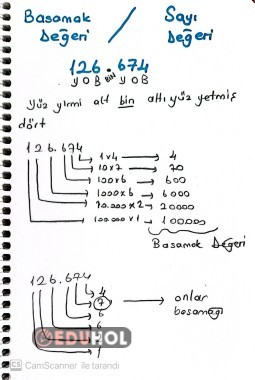 Basamak / Sayı
Değeri Değeri
126.674
Y O B BİN Y O B
Yüz yirmi altı bin altı yüz yetmiş
dört
126.674
1x4 → 4
10x7 → 70
100x6 → 600
1000x6 → 6000
10.000x2 → 20000
100.000x1 → 100000
Basamak Değeri
126.674
4
7 → onlar
6 basamağı
6
EDUHOL
1
CS CamScanner ile tarandı